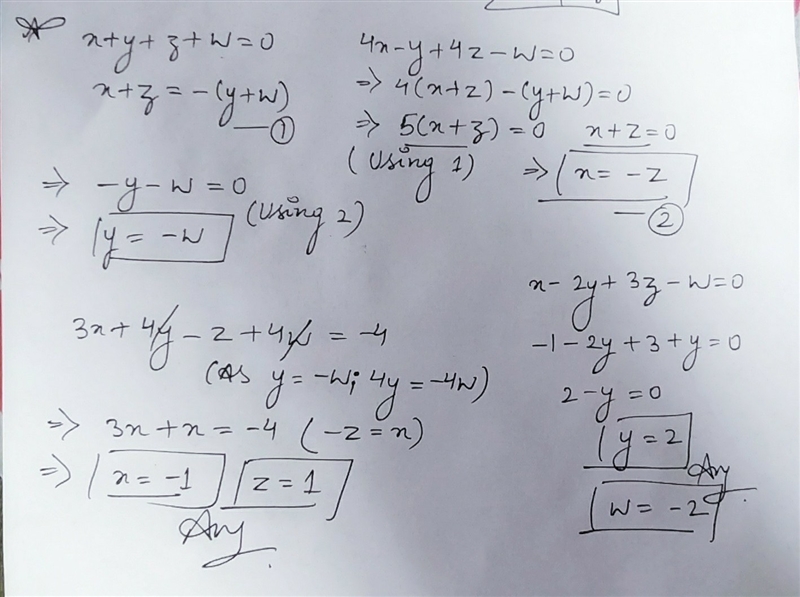 x+y+z+w=0
x+z = -(y+w)
—①
4x-y+4z-w=0
=> 4(x+z) -(y+w)=0
=> 5(x+z) = 0 x+z=0
(Using 1) => x = -z
—②
=> -y-w=0
(Using 2)
=> y = -w
3x+4y-z+4w = -4
(As y=-w; 4y=-4w)
=> 3x+x = -4 (-z=x)
=> x=-1 z=1
Ans
x-2y+3z-w=0
-1-2y+3+y=0
2-y=0
y=2
Ans
w=-2